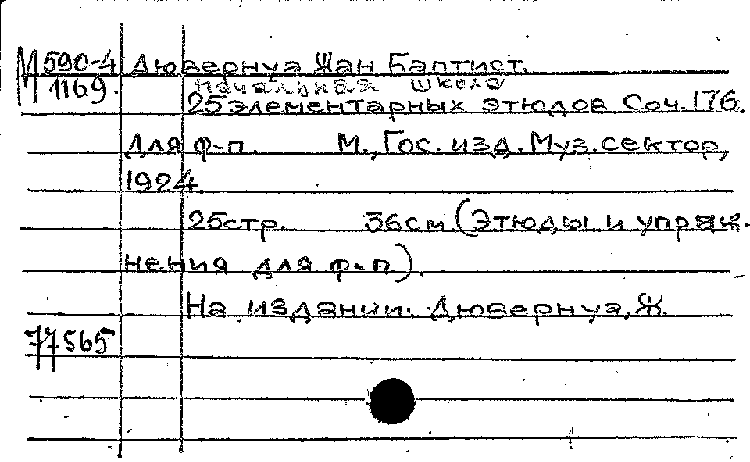 М 590-4 Дювернуа Жан Баптист.
1169. Начальная школа
25 элементарных этюдов Соч. 176.
Для ф-п. М., Гос. изд. Муз. сектор,
1924
25 стр. 36 см (Этюды и упраж-
нения для ф-п).
На издании: Дювернуа, Ж.
77565